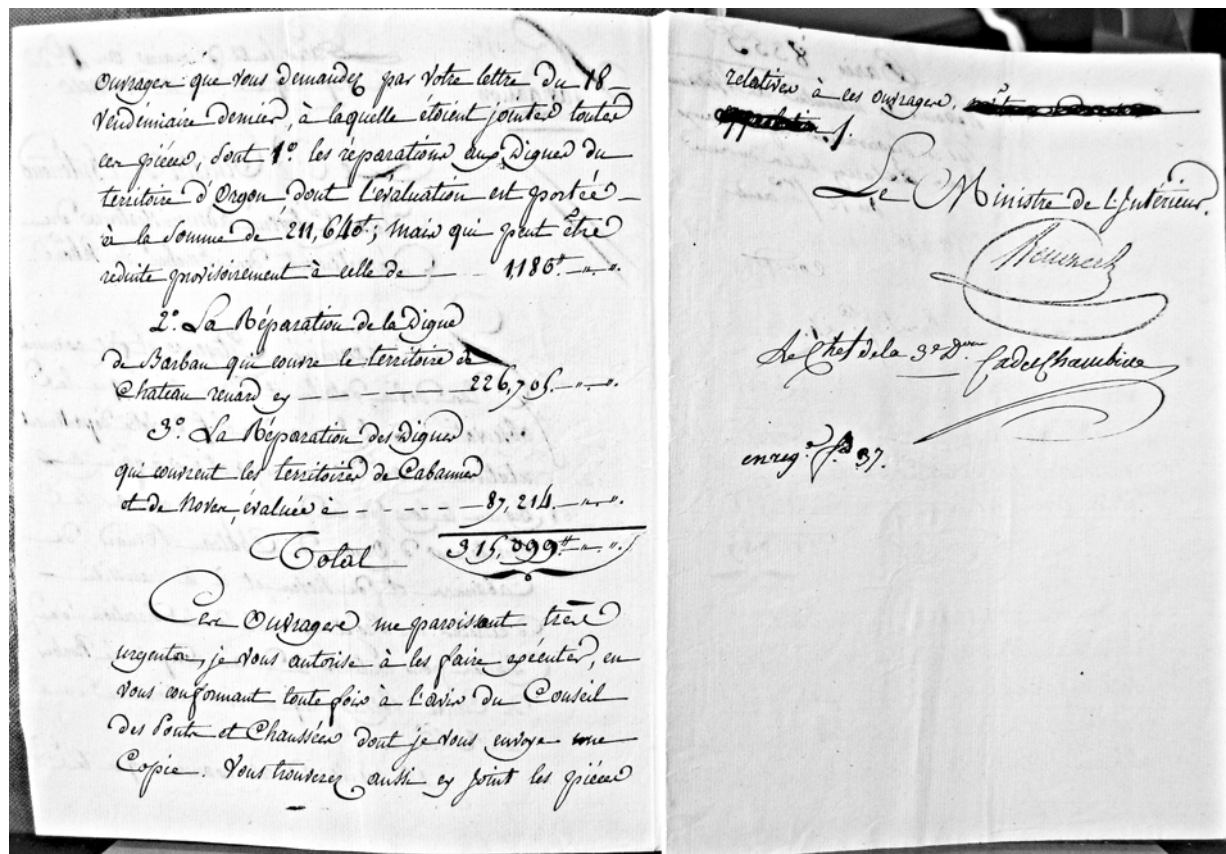 Ouvrages que vous demandez par votre lettre du 18
Vendemiaire dernier, à laquelle étoient jointes toutes
ces pièces, Sont 1º. les réparations aux Digues du
territoire d'Orgon dont l'évaluation est portée
à la Somme de 211,640ᵗᵗ; mais qui peut être
reduite provisoirement à celle de — 1186ᵗᵗ „ „.
2º. La Réparation de la Digue
de Barban qui couvre le territoire de
Chateau renard cy — 226,705. — „ — „.
3º. La Réparation des Digues
qui couvrent les territoires de Cabannes
et de Noves, évaluée à - - - - - 87,214. — „ — „.
Total 315,099ᵗᵗ — „ — „.
Ces Ouvrages me paroissant très
urgents, je vous autorise à les faire exécuter, en
vous conformant toute fois à l'avis du Conseil
des Ponts et Chaussées dont je vous envoye une
Copie. Vous trouverez aussi cy Joint les pièces
relatives à ces ouvrages.
Le Ministre de l'Intérieur.
Benezech
Le Chef de la 3e Don
Cadet Chambine
enreg.é fº 37.